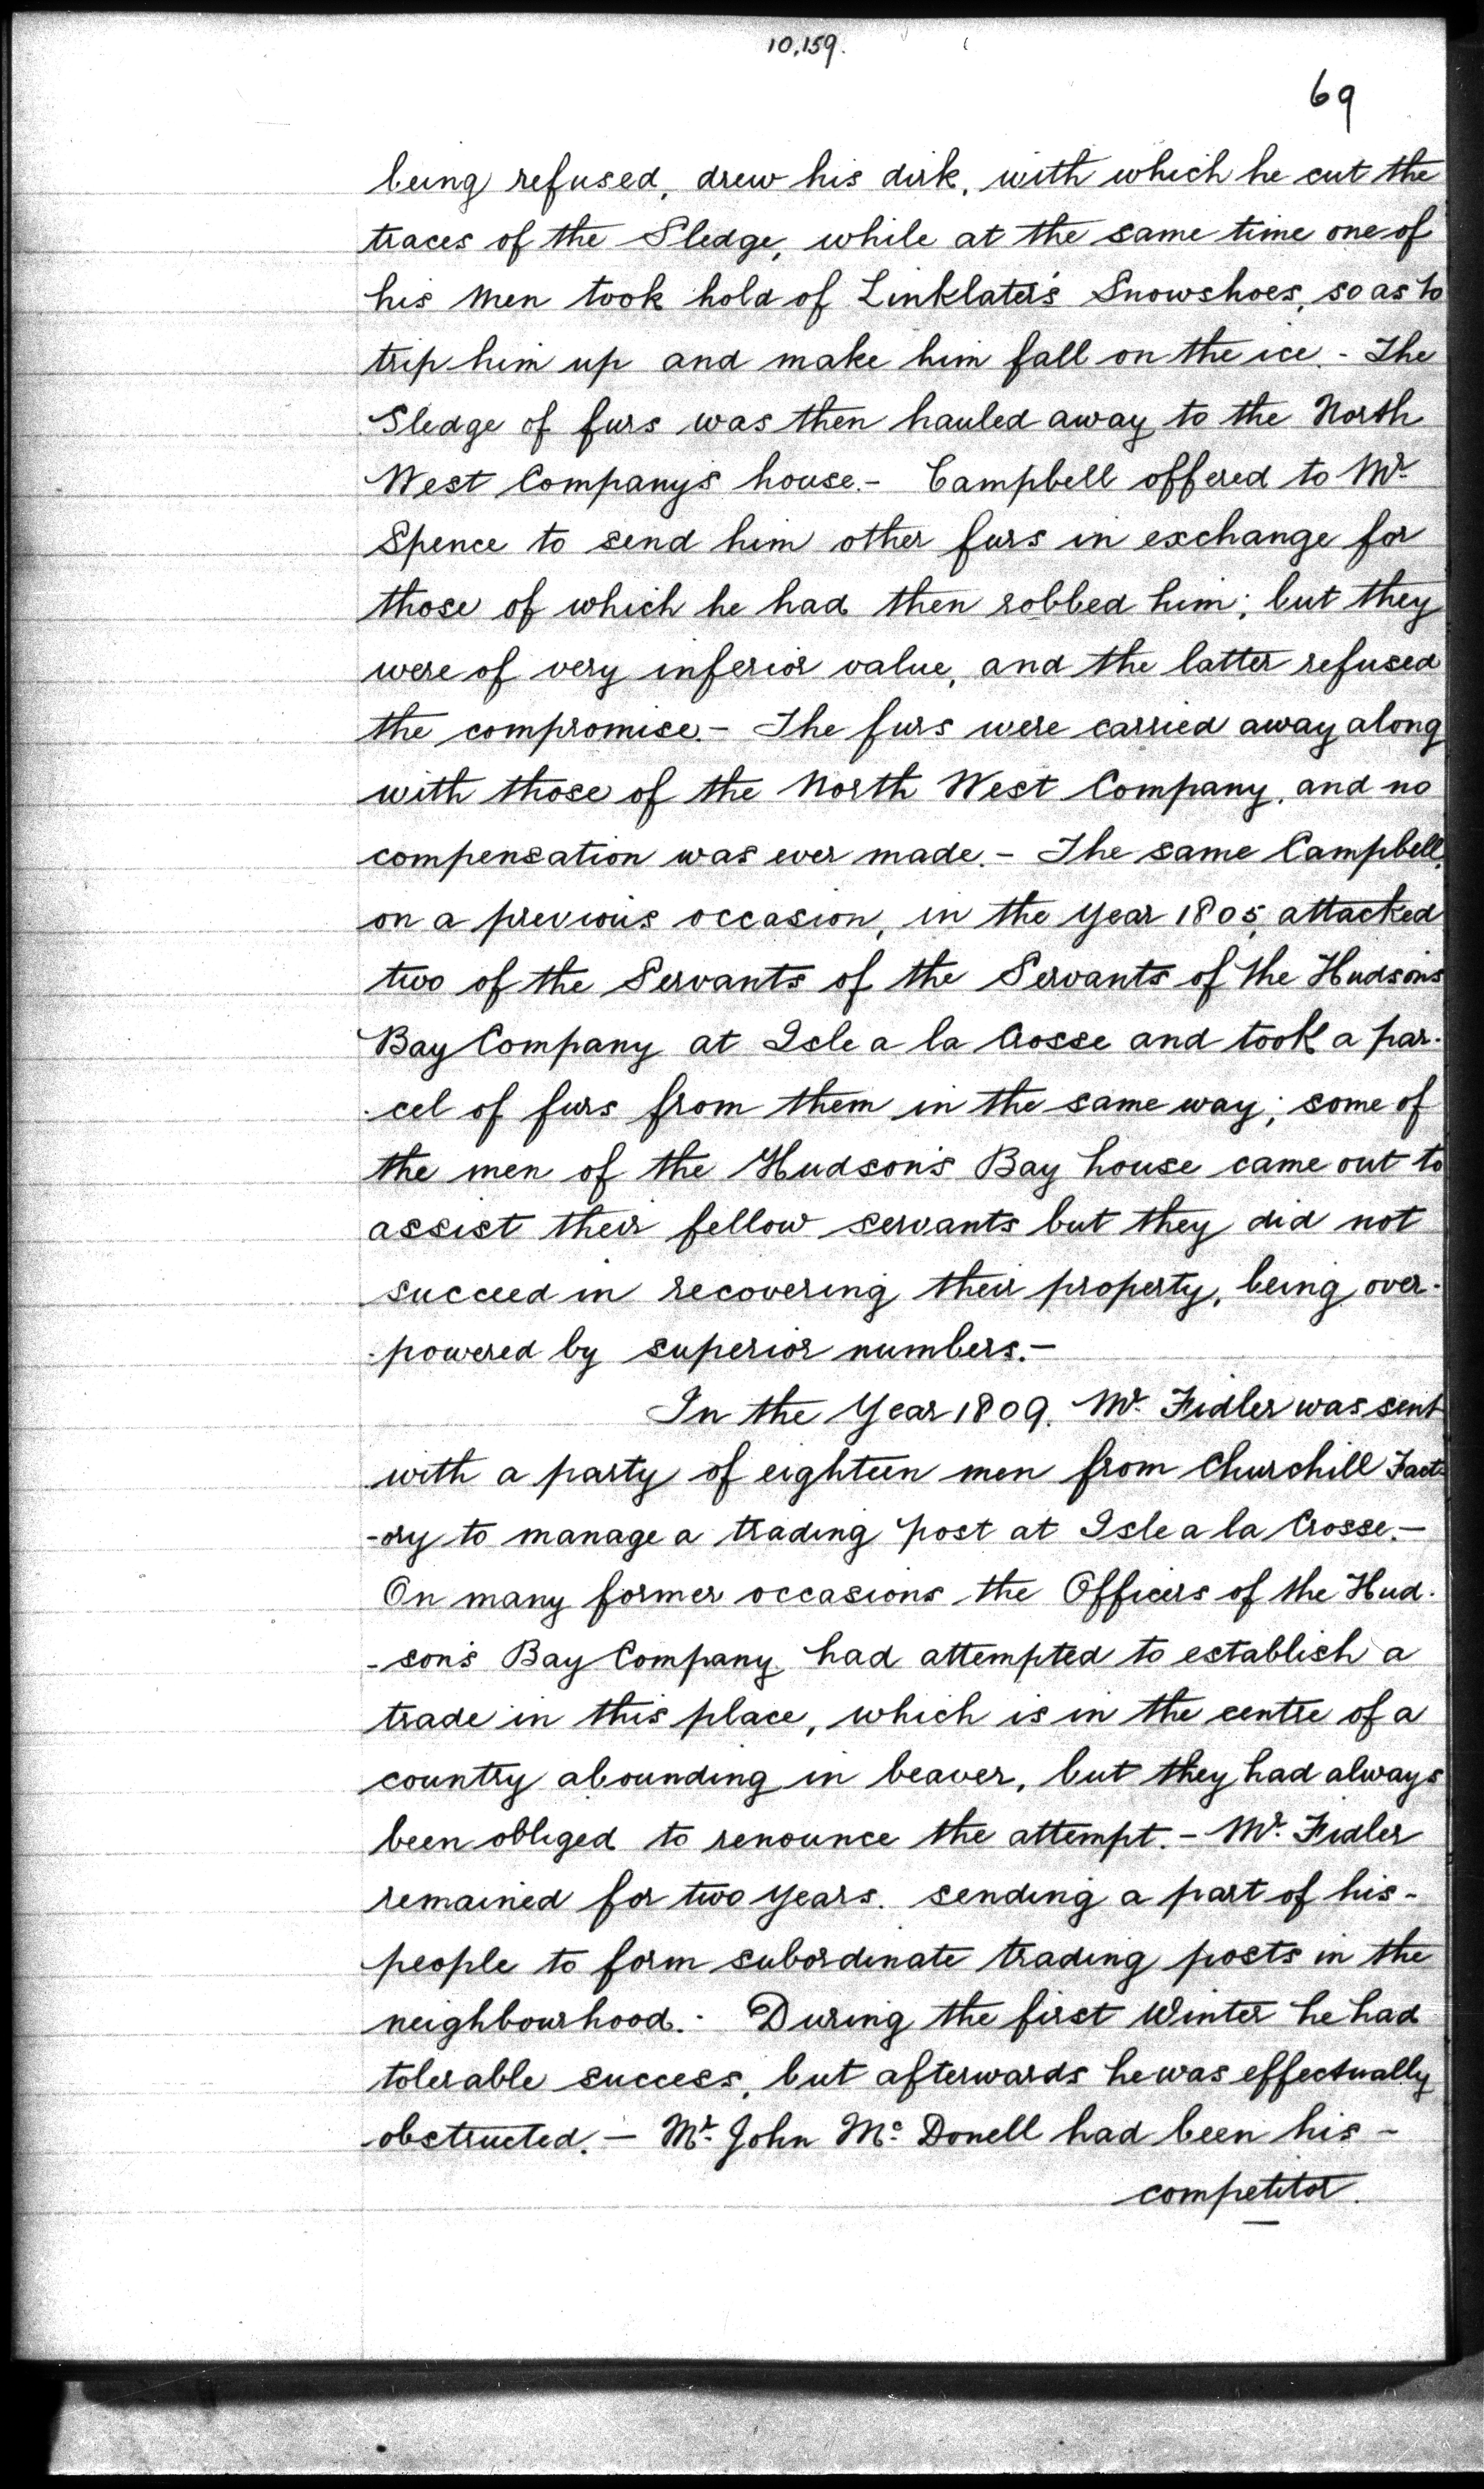 10,159.
69
being refused, drew his dirk, with which he cut the
traces of the Sledge, while at the same time one of
his men took hold of Linklater's Snowshoes, so as to
trip him up and make him fall on the ice. - The
Sledge of furs was then hauled away to the North
West Company's house. - Campbell offered to Mr.
Spence to send him other furs in exchange for
those of which he had then robbed him; but they
were of very inferior value, and the latter refused
the compromise. - The furs were carried away along
with those of the North West Company, and no
compensation was ever made. - The same Campbell,
on a previous occasion, in the year 1805, attacked
two of the Servants of the Servants of the Hudson's
Bay Company at Isle a la Crosse and took a par-
-cel of furs from them in the same way; some of
the men of the Hudson's Bay house came out to
assist their fellow servants but they did not
succeed in recovering their property, being over-
-powered by superior numbers. -
In the Year 1809. Mr. Fidler was sent
with a party of eighteen men from Churchill Fact-
-ory to manage a trading post at Isle a la Crosse. -
On many former occasions the Officers of the Hud-
-son's Bay Company had attempted to establish a
trade in this place, which is in the centre of a
country abounding in beaver, but they had always
been obliged to renounce the attempt. - Mr. Fidler
remained for two years. sending a part of his -
people to form subordinate trading posts in the
neighbourhood. - During the first Winter he had
tolerable success, but afterwards he was effectually
obstructed. - Mr. John Mc. Donell had been his -
competitor.